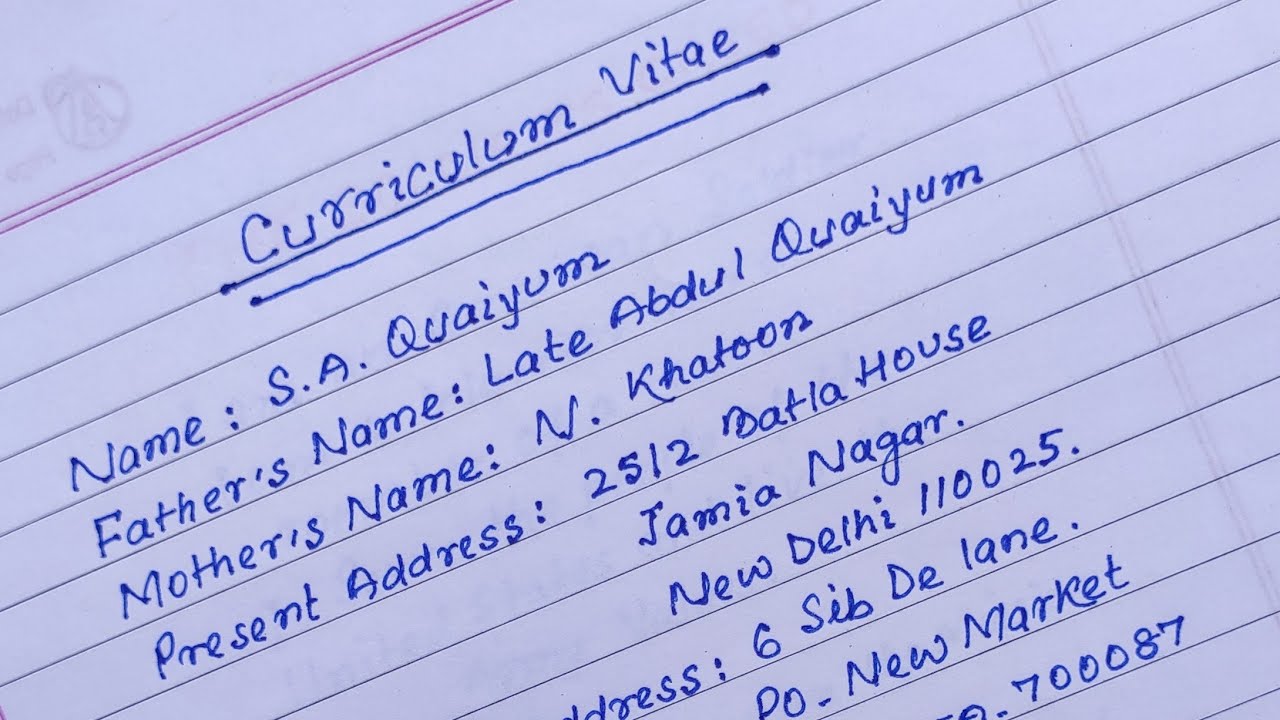 Curriculum Vitae
Name: S.A. Quaiyum
Father's Name: Late Abdul Quaiyum
Mother's Name: N. Khatoon
Present Address: 2512 Batla House
Jamia Nagar.
New Delhi 110025.
6 Sib De lane.
PO. New Market
700087